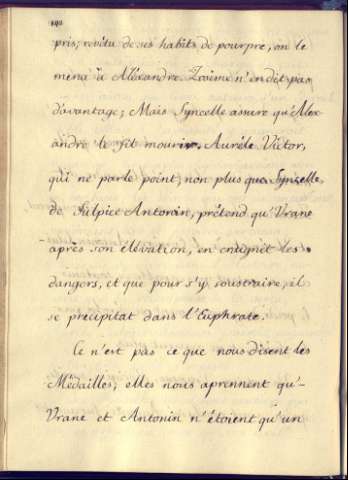 pris, revêtu de ses habits de pourpre, on le
mena à Aléxandre. Zosime n'en dit pas
d'avantage; Mais Syncelle assure qu'Alex
andre le fit mourir. Auréle Victor,
qui ne parle point, non plus que Syncelle
de Sulpice Antonin, prétend qu'Urane
après son élévation, en craignit les
dangers, et que pour s'y soustraire, il
se précipitat dans l'Euphrate.
Ce n'est pas ce que nous disent les
Médailles; elles nous aprennent qu'-
Urane et Antonin n'étoient qu'un